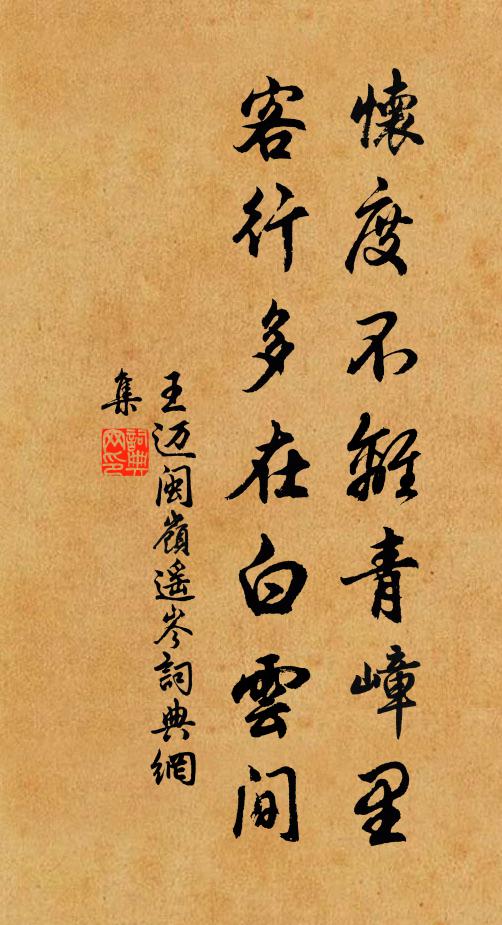 懷度不離青嶂里
客行多在白雲間
王迈闽嶺遥岑詞典網
集
詞典網印